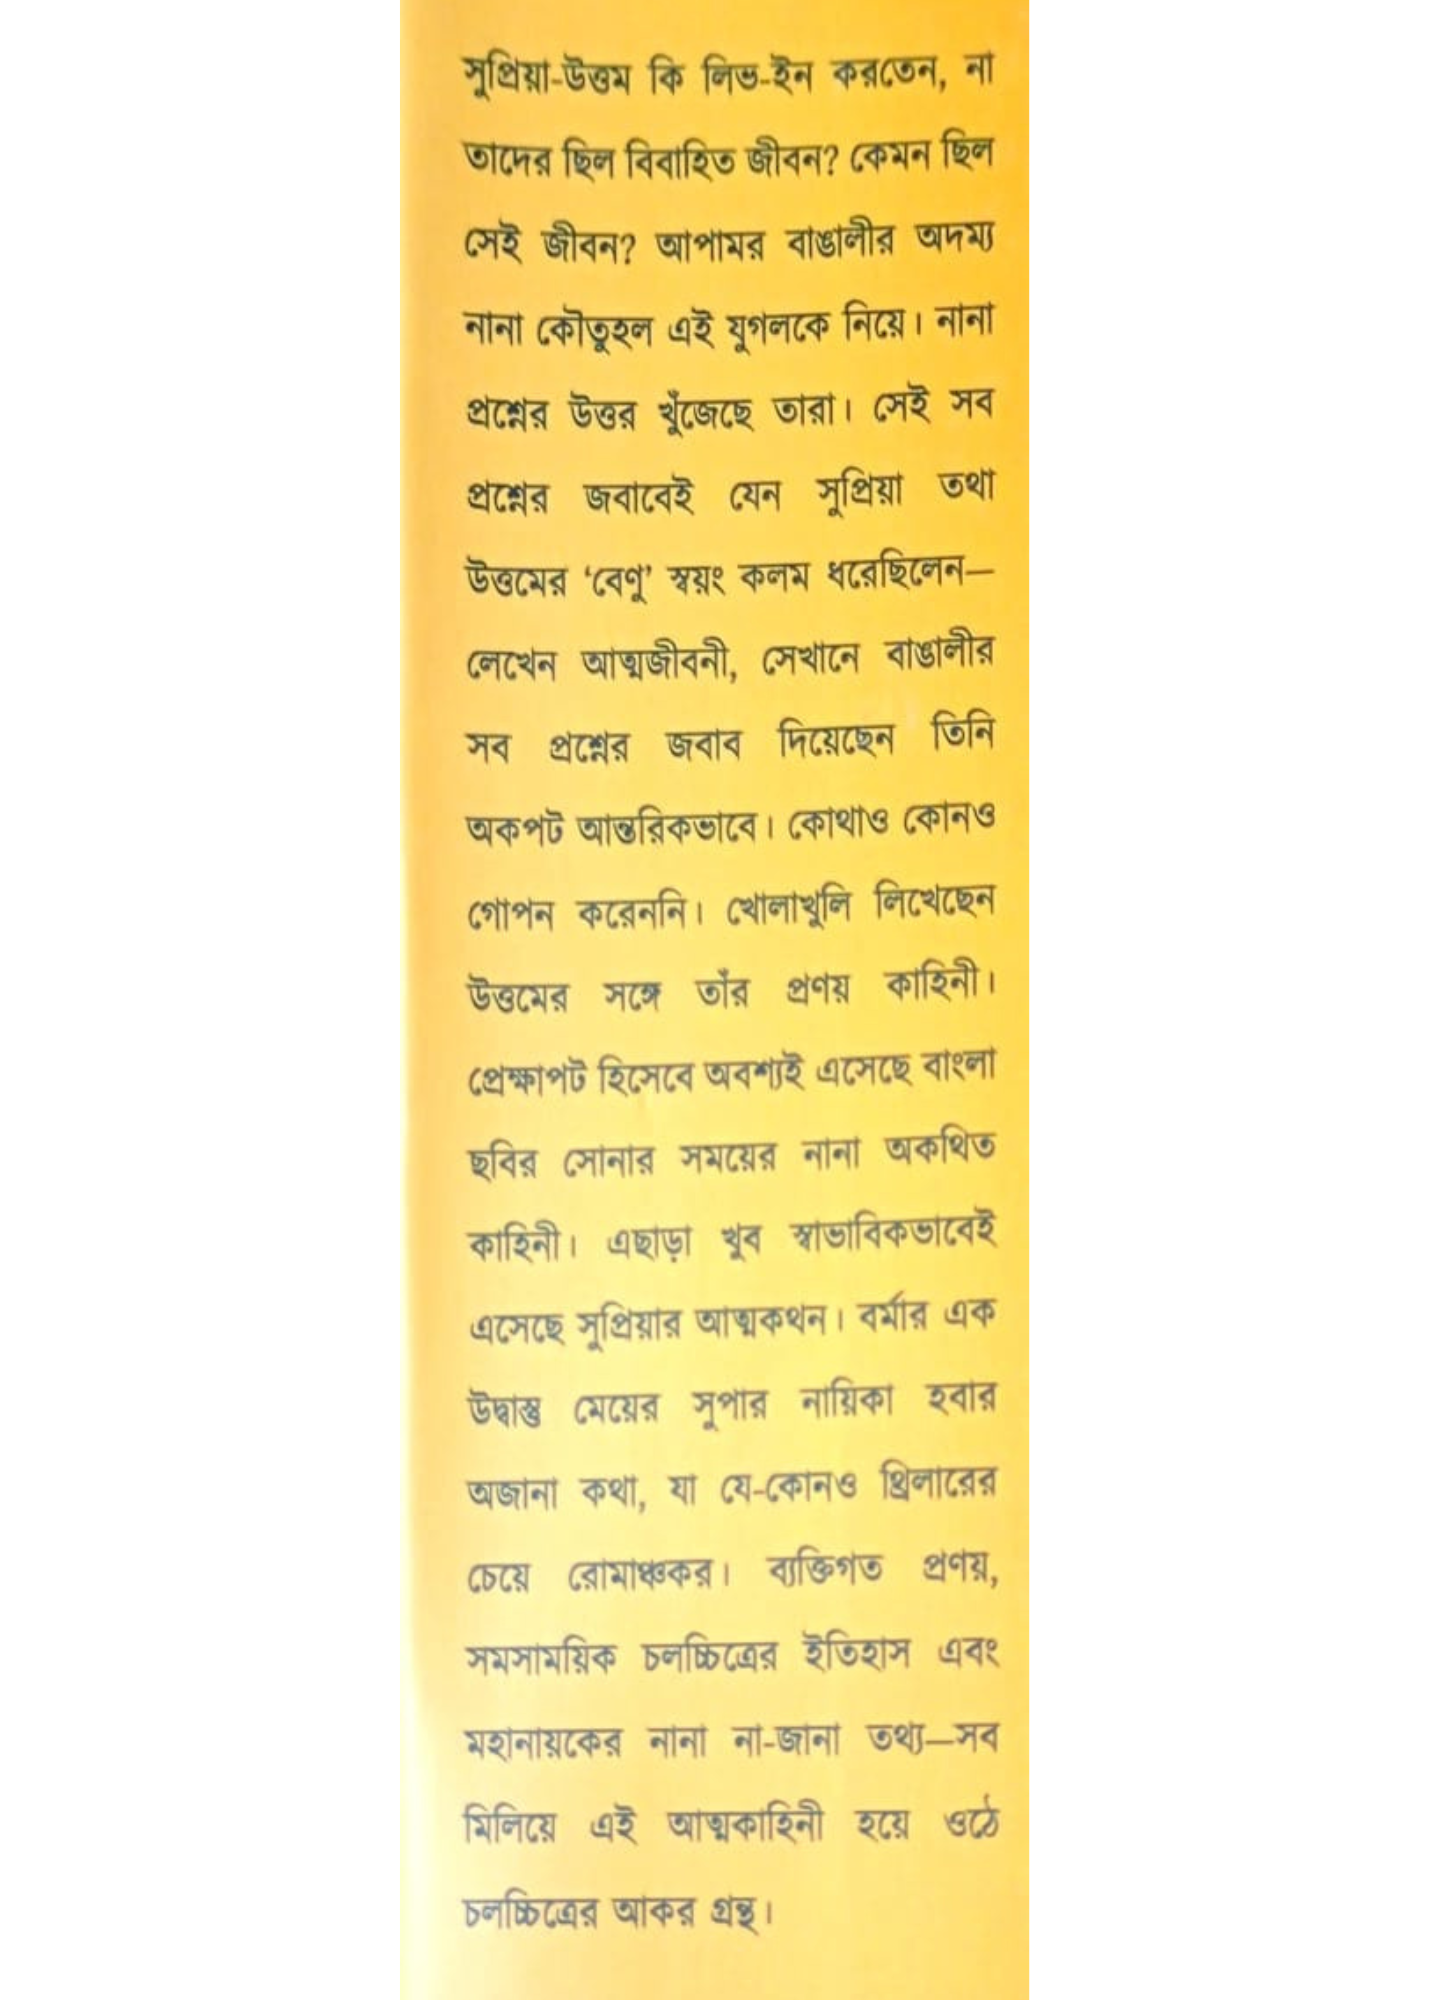 সুপ্রিয়া-উত্তম কি লিভ-ইন করতেন, না
তাদের ছিল বিবাহিত জীবন? কেমন ছিল
সেই জীবন? আপামর বাঙালীর অদম্য
নানা কৌতুহল এই যুগলকে নিয়ে। নানা
প্রশ্নের উত্তর খুঁজেছে তারা। সেই সব
প্রশ্নের জবাবেই যেন সুপ্রিয়া তথা
উত্তমের ‘বেণু’ স্বয়ং কলম ধরেছিলেন—
লেখেন আত্মজীবনী, সেখানে বাঙালীর
সব প্রশ্নের জবাব দিয়েছেন তিনি
অকপট আন্তরিকভাবে। কোথাও কোনও
গোপন করেননি। খোলাখুলি লিখেছেন
উত্তমের সঙ্গে তাঁর প্রণয় কাহিনী।
প্রেক্ষাপট হিসেবে অবশ্যই এসেছে বাংলা
ছবির সোনার সময়ের নানা অকথিত
কাহিনী। এছাড়া খুব স্বাভাবিকভাবেই
এসেছে সুপ্রিয়ার আত্মকথন। বর্মার এক
উদ্বাস্তু মেয়ের সুপার নায়িকা হবার
অজানা কথা, যা যে-কোনও থ্রিলারের
চেয়ে রোমাঞ্চকর। ব্যক্তিগত প্রণয়,
সমসাময়িক চলচ্চিত্রের ইতিহাস এবং
মহানায়কের নানা না-জানা তথ্য—সব
মিলিয়ে এই আত্মকাহিনী হয়ে ওঠে
চলচ্চিত্রের আকর গ্রন্থ।